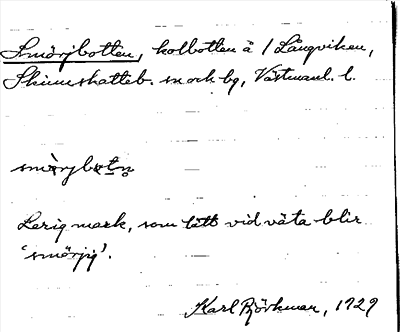 Smörjbotten, kolbotten å / Långviken,
Skinnskatteb. sn ock bg, Västmanl. l.
smörjbotn̥
Lerig mark, som lätt vid väta blir
'smörjig'.
Karl Björkman, 1929